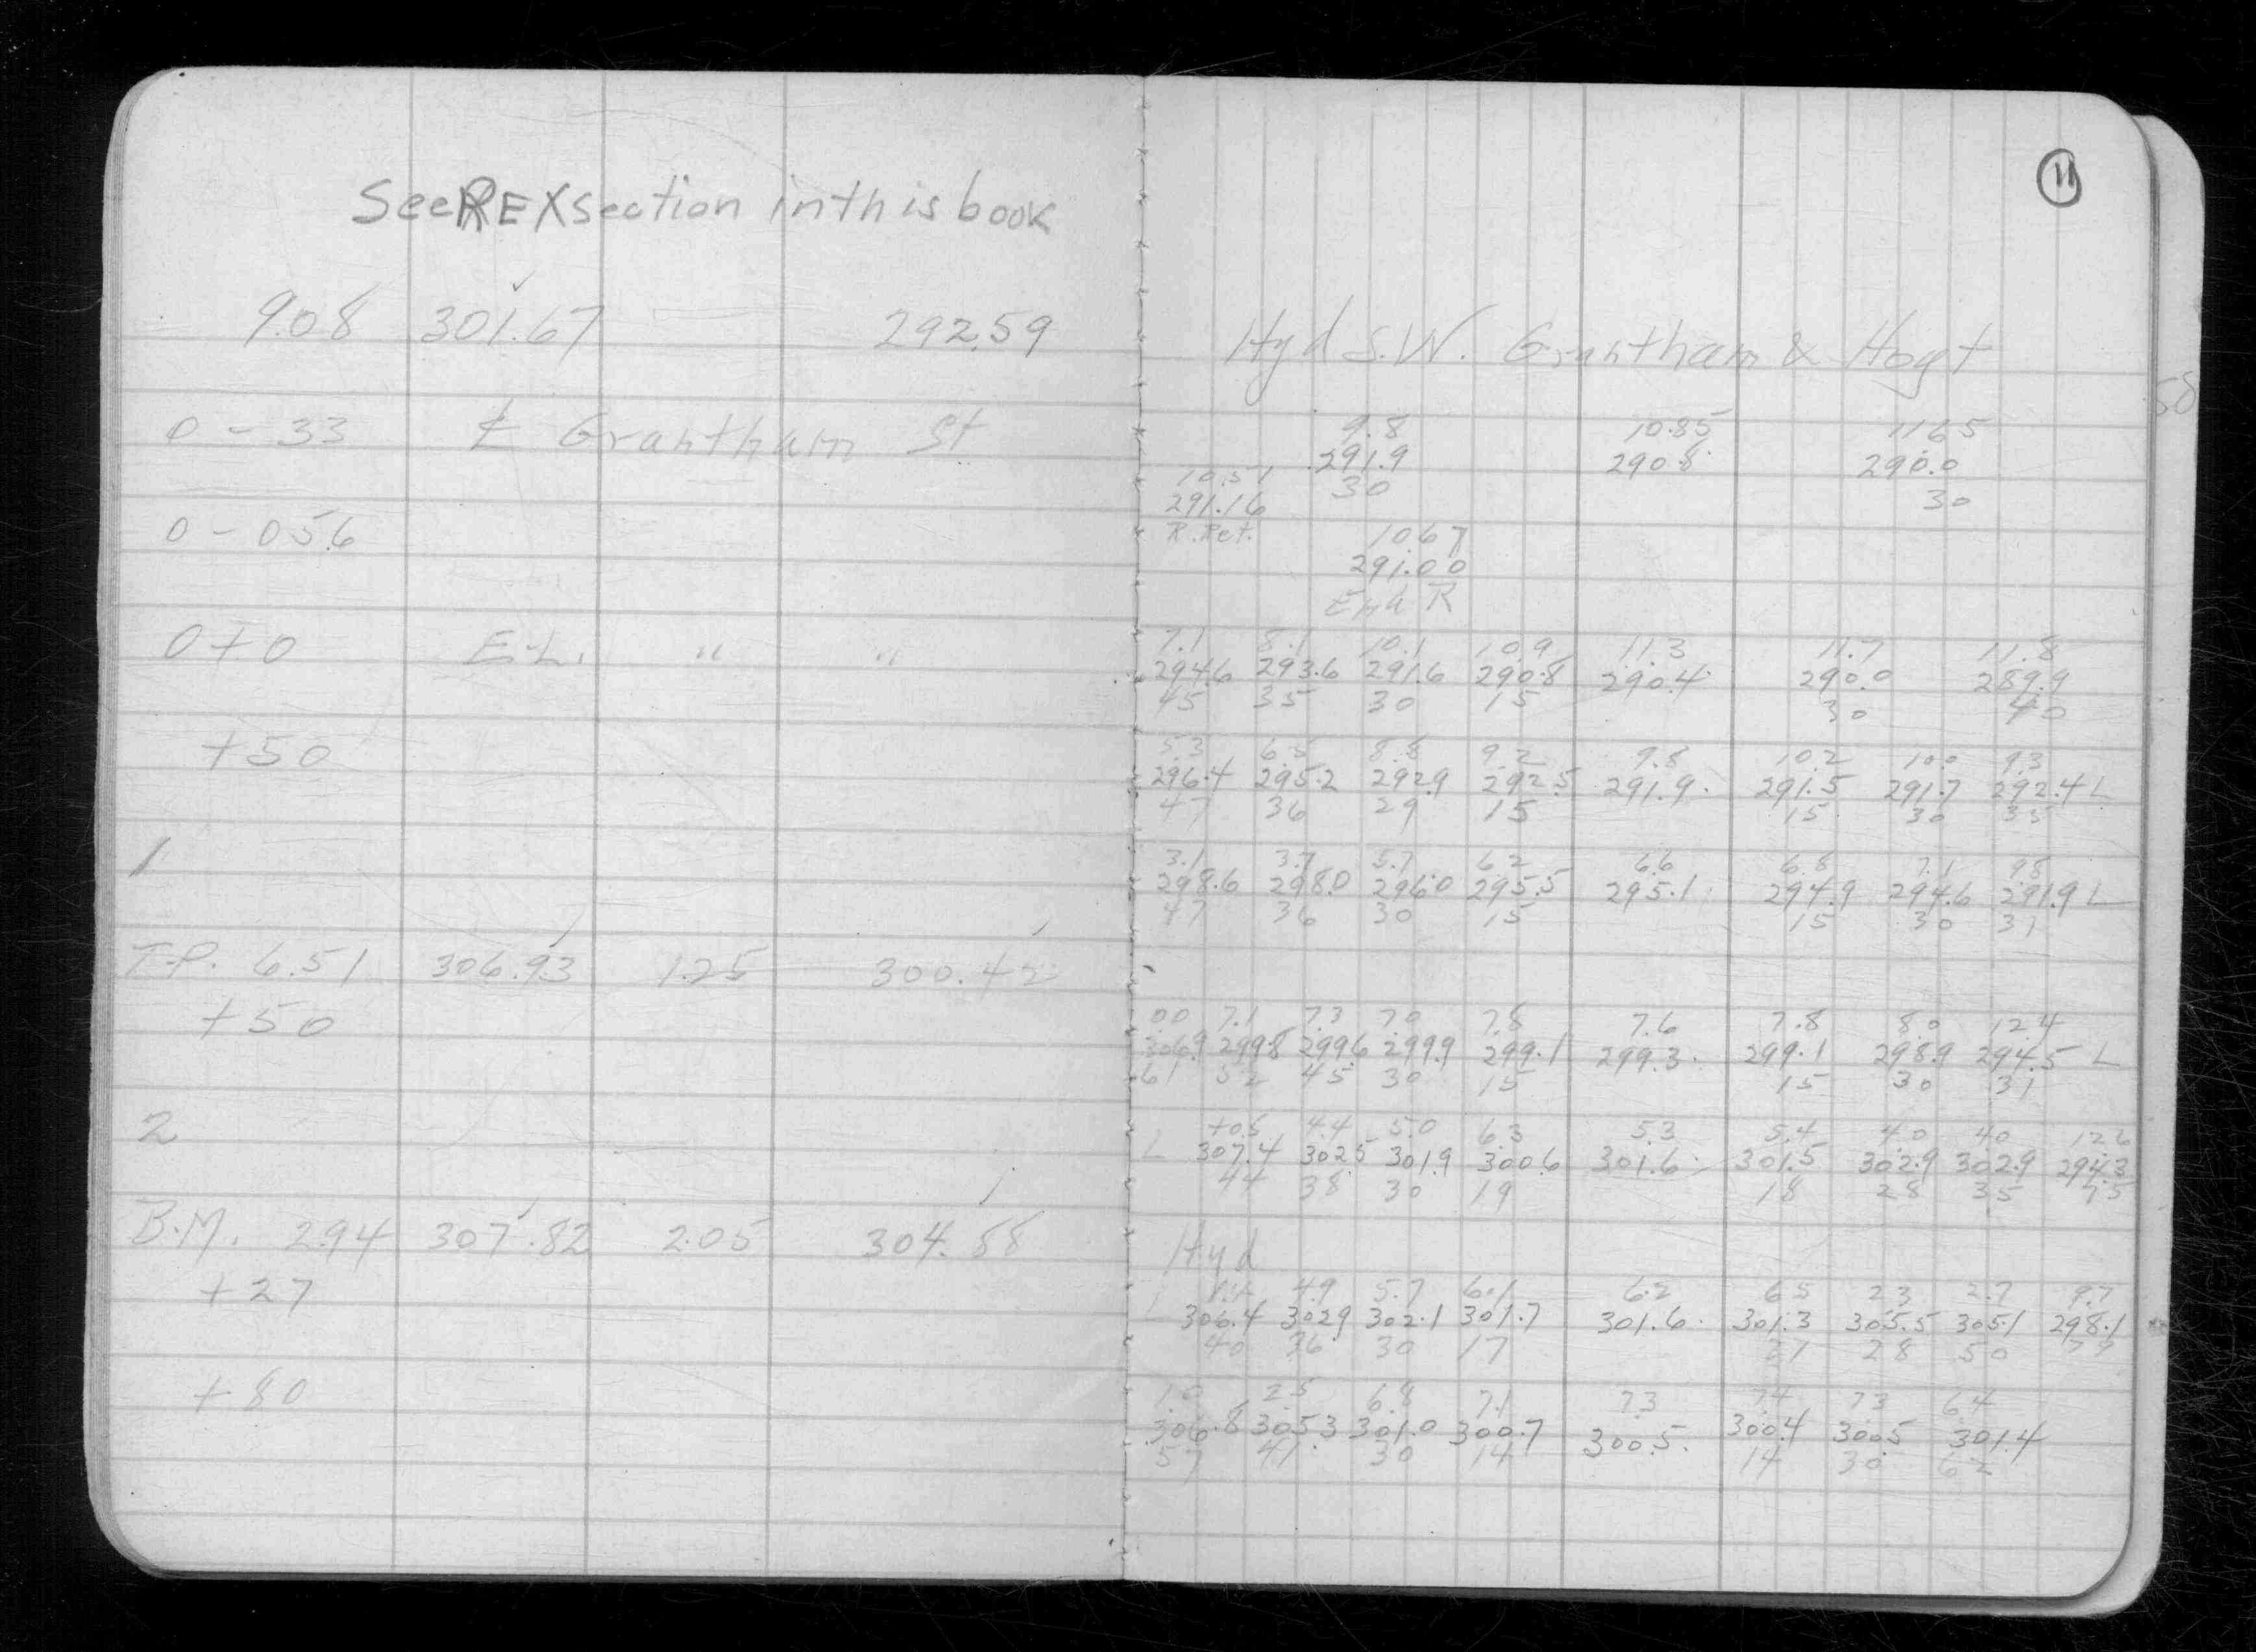 See REX section in this book
9.08 301.67 292.59
0 - 33 ℄ Grantham St
0 - 05.6
0 + 0 E.L. " "
+50
1
T.P. 6.51 306.93 1.25 300.42
+50
2
B.M. 2.94 307.82 2.05 304.88
+27
+80
11
Hyd S.W. Grantham & Hoyt
9.8 10.85 11.65
291.9 290.8 290.0
30 30
10.51
291.16
R. Ret.
10.67
291.00
End R
7.1 8.1 10.1 10.9 11.3 11.7 11.8
294.6 293.6 291.6 290.8 290.4 290.0 289.9
45 35 30 15 30 40
5.3 6.5 8.8 9.2 9.8 10.2 10.0 9.3
296.4 295.2 292.9 292.5 291.9 291.5 291.7 292.4 L
47 36 29 15 15 30 35
3.1 3.7 5.7 6.2 6.6 6.8 7.1 9.8
298.6 298.0 296.0 295.5 295.1 294.9 294.6 291.9 L
47 36 30 15 15 30 31
0.0 7.1 7.3 7.0 7.8 7.6 7.8 8.0 12.4
306.9 299.8 299.6 299.9 299.1 299.3 299.1 298.9 294.5 L
61 52 45 30 15 15 30 31
+0.5 4.4 5.0 6.3 5.3 5.4 4.0 4.0 12.6
L 307.4 302.5 301.9 300.6 301.6 301.5 302.9 302.9 294.3
44 38 30 19 18 28 35 75
Hyd
4.9 5.7 6.1 6.2 6.5 2.3 2.7 9.7
L 306.4 302.9 302.1 301.7 301.6 301.3 305.5 305.1 298.1
40 36 30 17 21 28 50
1.0 2.5 6.8 7.1 7.3 7.4 7.3 6.4
306.8 305.3 301.0 300.7 300.5 300.4 300.5 301.4
57 41 30 14 14 30 62